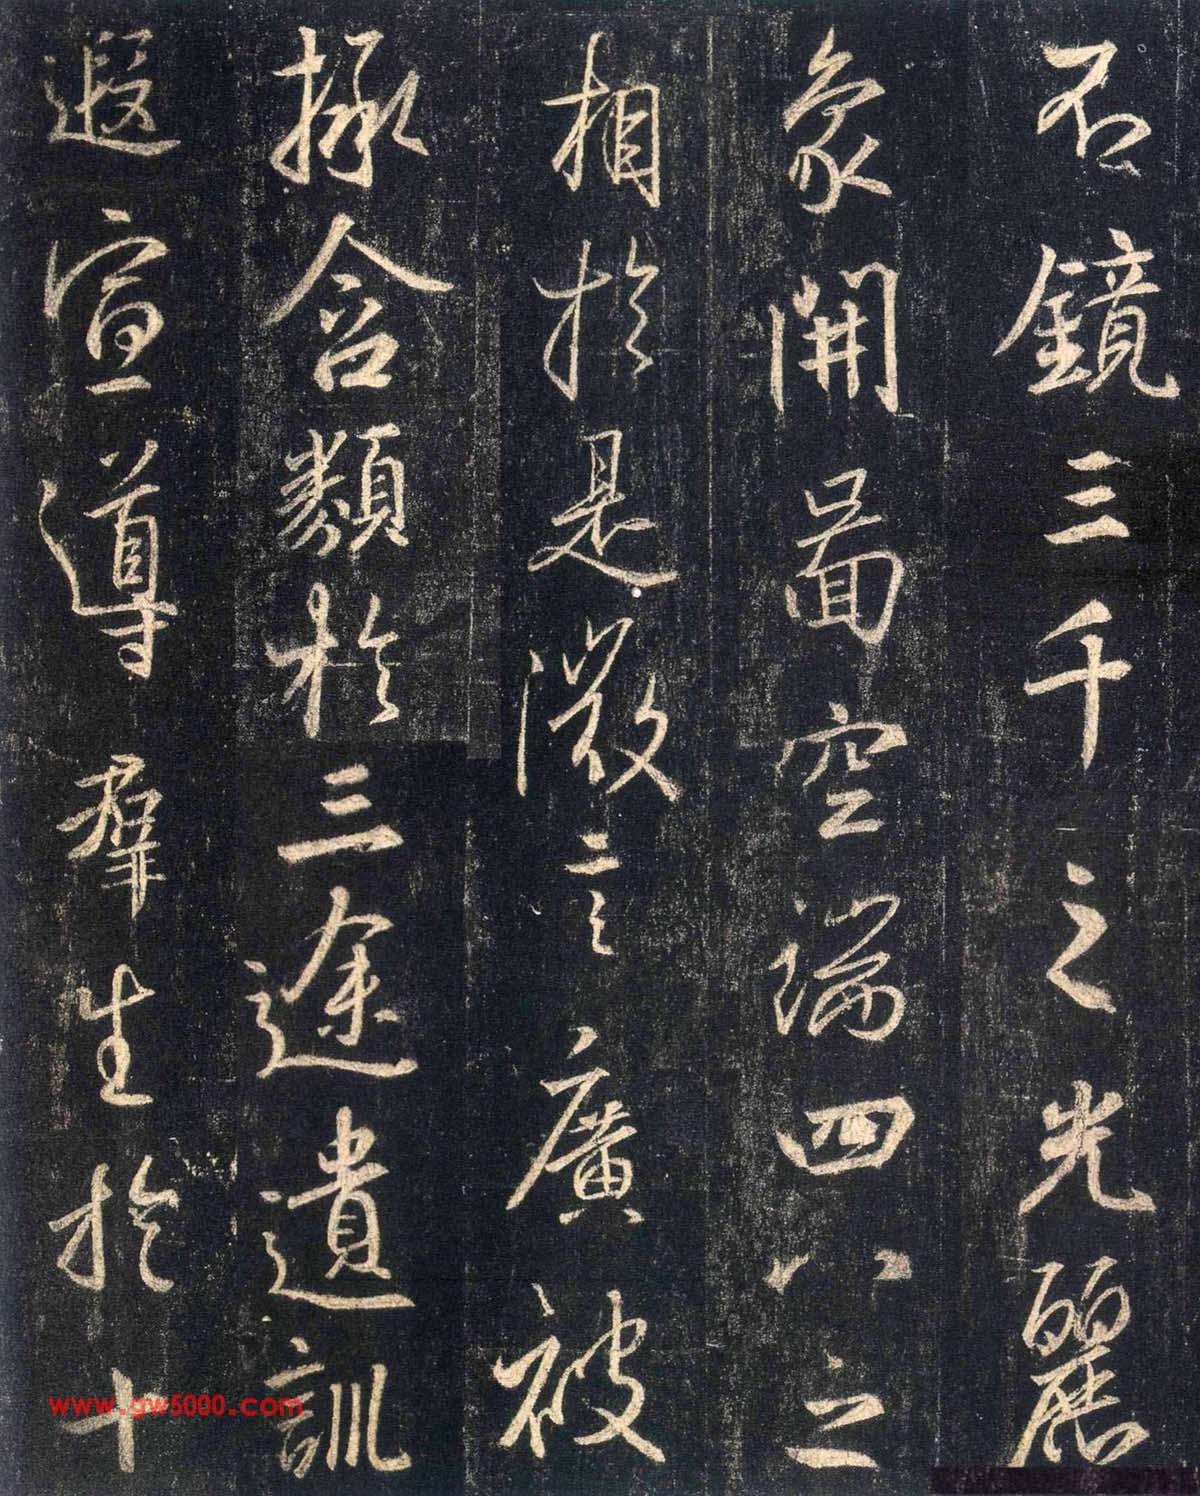 不鏡三千之光麗
象開啚空端四八之
相於是微言廣被
拯含類於三途遺訓
遐宣導羣生於十
www.gw5000.com